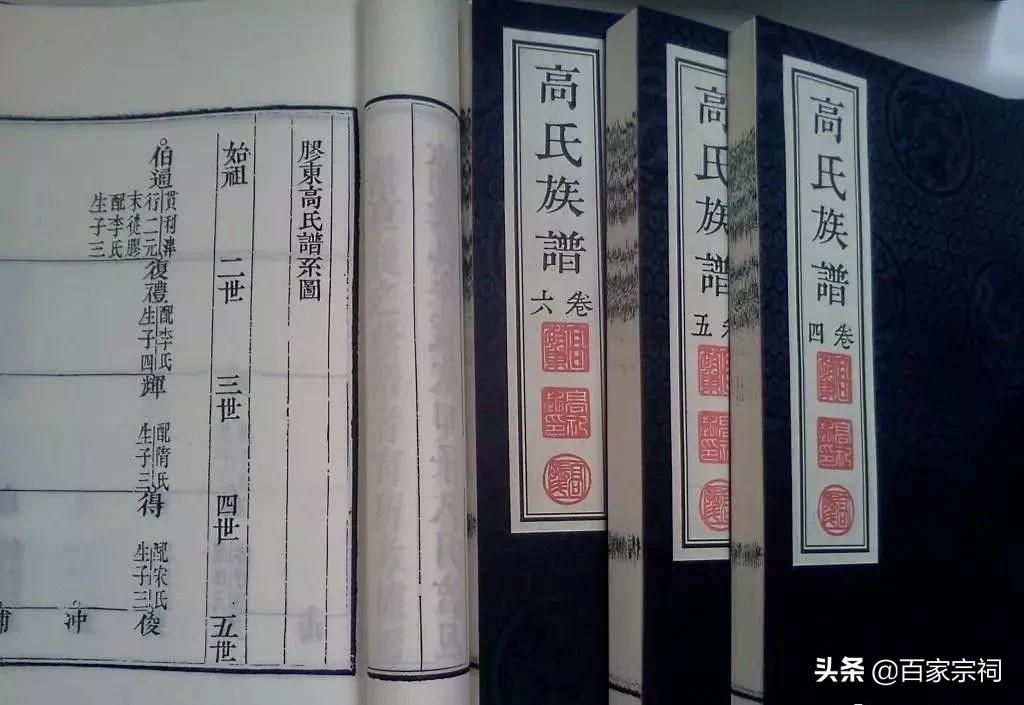 膠東高氏譜系圖
始祖
二世
三世
四世
五世
伯通
貫利津
行二元
末徙膠
配李氏
生子三
復禮
配李氏
生子四
輝
配隋氏
生子三
得
配宋氏
生子三
俊
沖
高氏族譜
卷六
高氏族譜
卷五
高氏族譜
卷四
头条 @百家宗祠